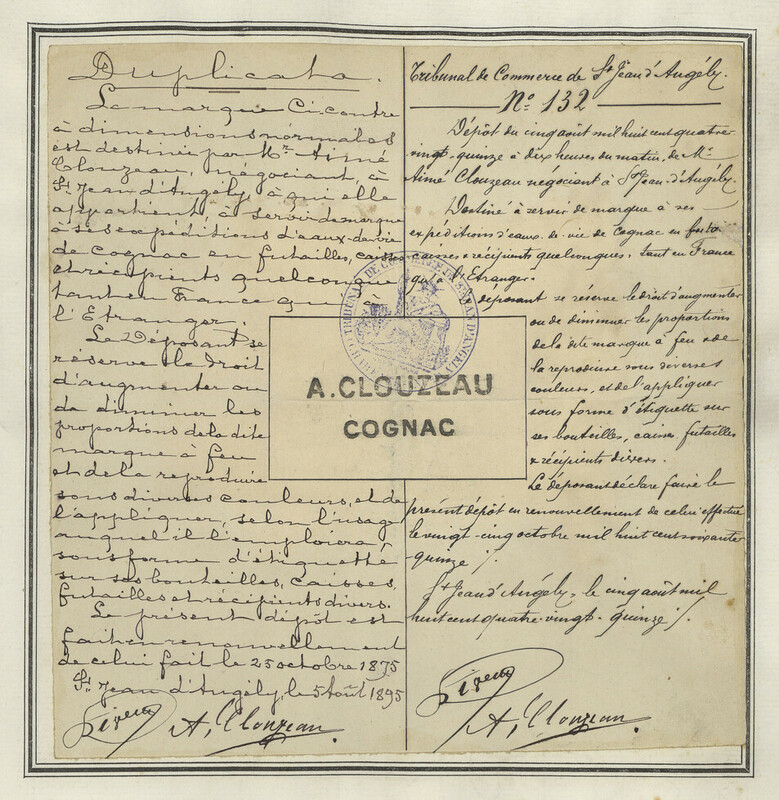 Duplicata.
La marque Ci-contre
à dimensions normales
est destinée par Mr. Aimé
Clouzeau, négociant, à
St Jean d'Angély, à qui elle
appartient, à servir de marque
à ses expéditions d'eaux-de-vie
de Cognac en futailles, caisses
et récipients quelconques
tant en France qu'à
l'Etranger.
Le Déposant se
réserve le droit
d'augmenter ou
de diminuer les
proportions de la dite
marque à feu
et de la reproduire
sous diverses couleurs, et de
l'appliquer, selon l'usage
auquel il l'emploiera
sous forme d'étiquette
sur ses bouteilles, caisses,
futailles et récipients divers.
Le présent dépôt est
fait en renouvellement
de celui fait le 25 octobre 1875
St Jean d'Angély, le 5 Août 1895
A, Clouzeau.
Tribunal de Commerce de St Jean d'Angély.
No 132
Dépôt du cinq août mil huit cent quatre-
vingt-quinze à dix heures du matin, de Mr
Aimé Clouzeau négociant à St Jean-d'Angély.
Destiné à servir de marque à ses
expéditions d'eaux-de-vie de Cognac en futs
caisses & récipients quelconques, tant en France
qu'à l'Etranger.
déposant se réserve le droit d'augmenter
ou de diminuer les proportions
de la dite marque à feu & de
la reproduire sous diverses
couleurs, et de l'appliquer
sous forme d'étiquette sur
ses bouteilles, caisses, futailles
& récipients divers.
Le déposant déclare faire le
présent dépôt en renouvellement de celui effectué
le vingt-cinq octobre mil huit cent soixante
quinze ./.
St Jean d'Angély, le cinq août mil
huit cent quatre-vingt-quinze ./.
A, Clouzeau.
A. CLOUZEAU
COGNAC